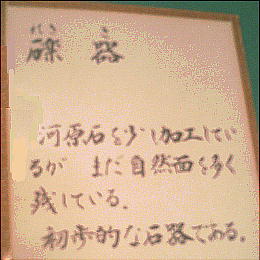 れき き
礫 器
河原石を少し加工してい
るが まだ自然面を多く
残している。
初歩的な石器である。